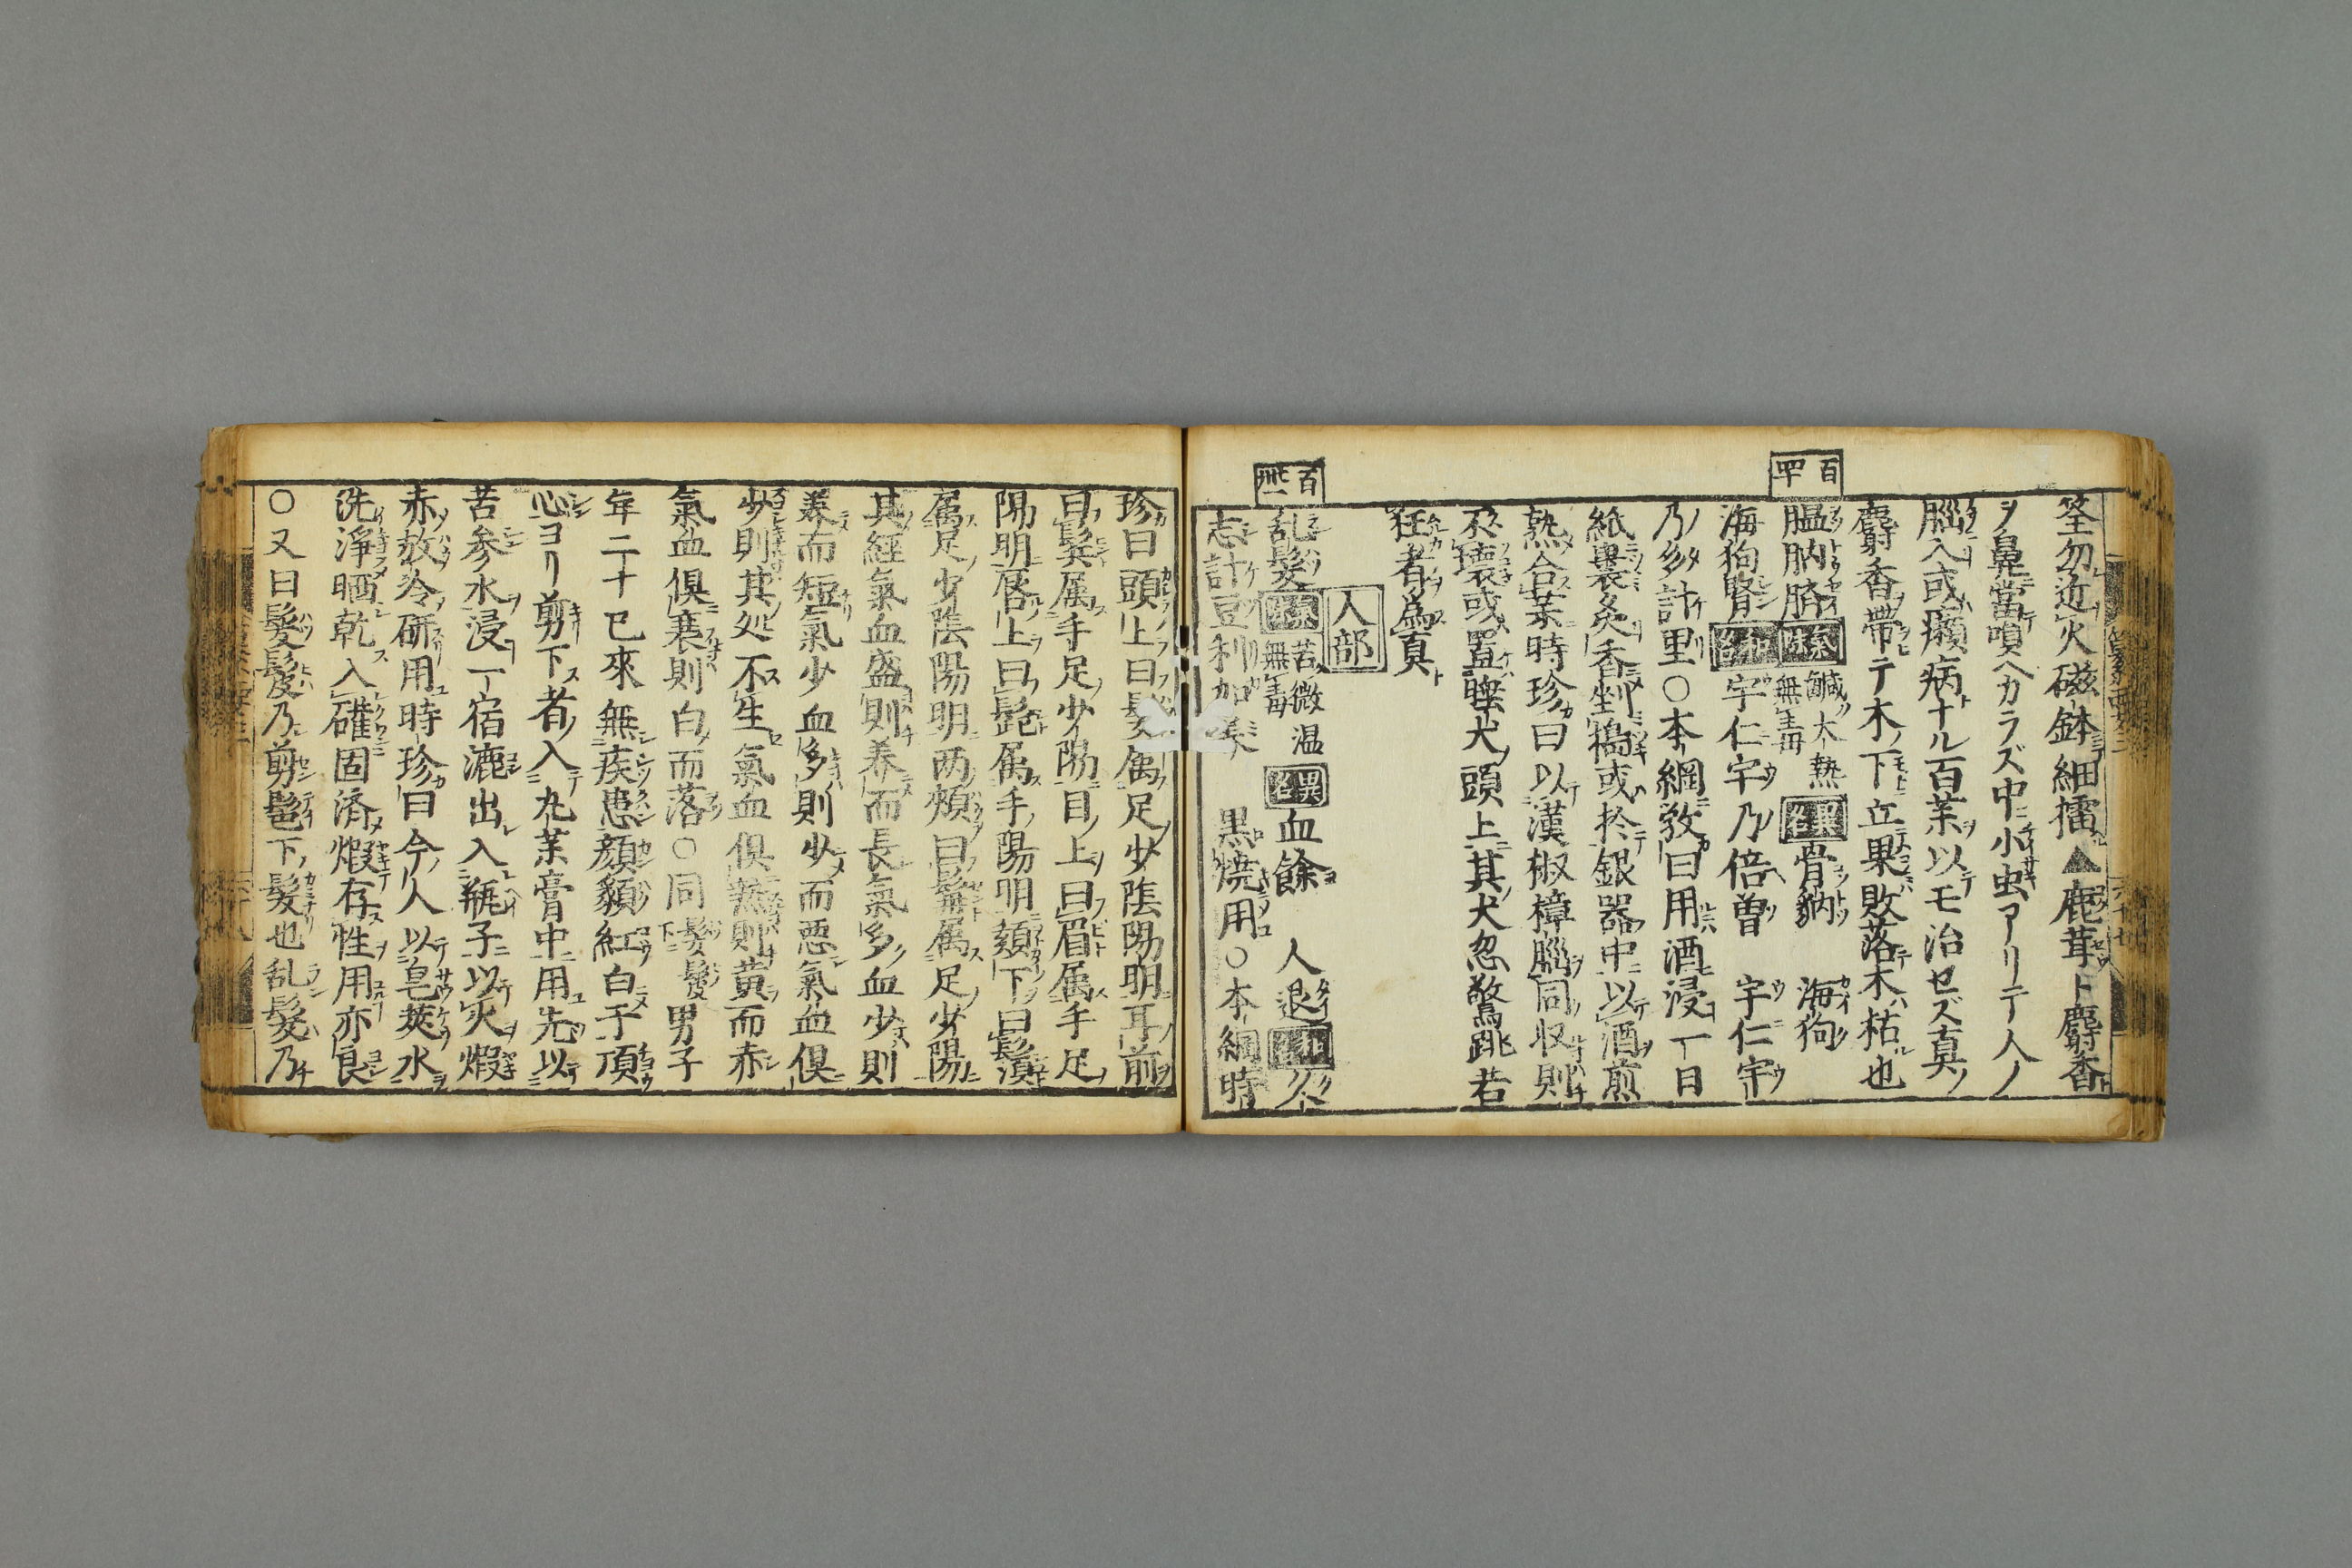 筌勿近火磁鉢細擂▲鹿茸ト麝香
ヲ鼻當嗅ヘカラズ中小虫アリテ人ノ
腦入或癩病ナル百茱以モ治セズ真ノ
麝香帶テ木ノ下立果敗落木ハ枯也
百四
膃肭臍 鹹大熱無毒 骨豽 海狗
海狗腎 宇仁宇乃倍曽 宇仁宇
乃多計里○本綱斆曰用酒浸一日
紙裹炙香剉搗或於銀器中以酒煎
熟合茱時珍曰以漢椒樟腦同収則
不壊或置睡犬頭上其犬忽驚跳若
狂者為真
人部
百四一
乱髮 苦微温無毒 血餘 人退 久
志計豆利加美 黒焼用○本綱時
珍曰頭上曰髮属足少陰陽明耳前
曰鬂属手足少陽目上曰眉属手足
陽明唇上曰髭属手陽明頦下曰鬚
属足少陰陽明两頰曰髯属足少陽
其經氣血盛則养而長氣多血少則
养而短氣少血多則少而悪氣血俱
少則其処不生氣血俱熱則黄而赤
氣血俱衰則白而落○同髮髲下男子
年二十已來無疾患顔貌紅白于頂
心ヨリ剪下者入丸茱膏中用先以
苦参水浸一宿漉出入瓶子以火煅
赤放冷研用時珍曰今人以皂莢水
洗淨晒乾入礶固済煅存性用亦良
○又曰髮髲乃剪髢下髮也乱髮乃